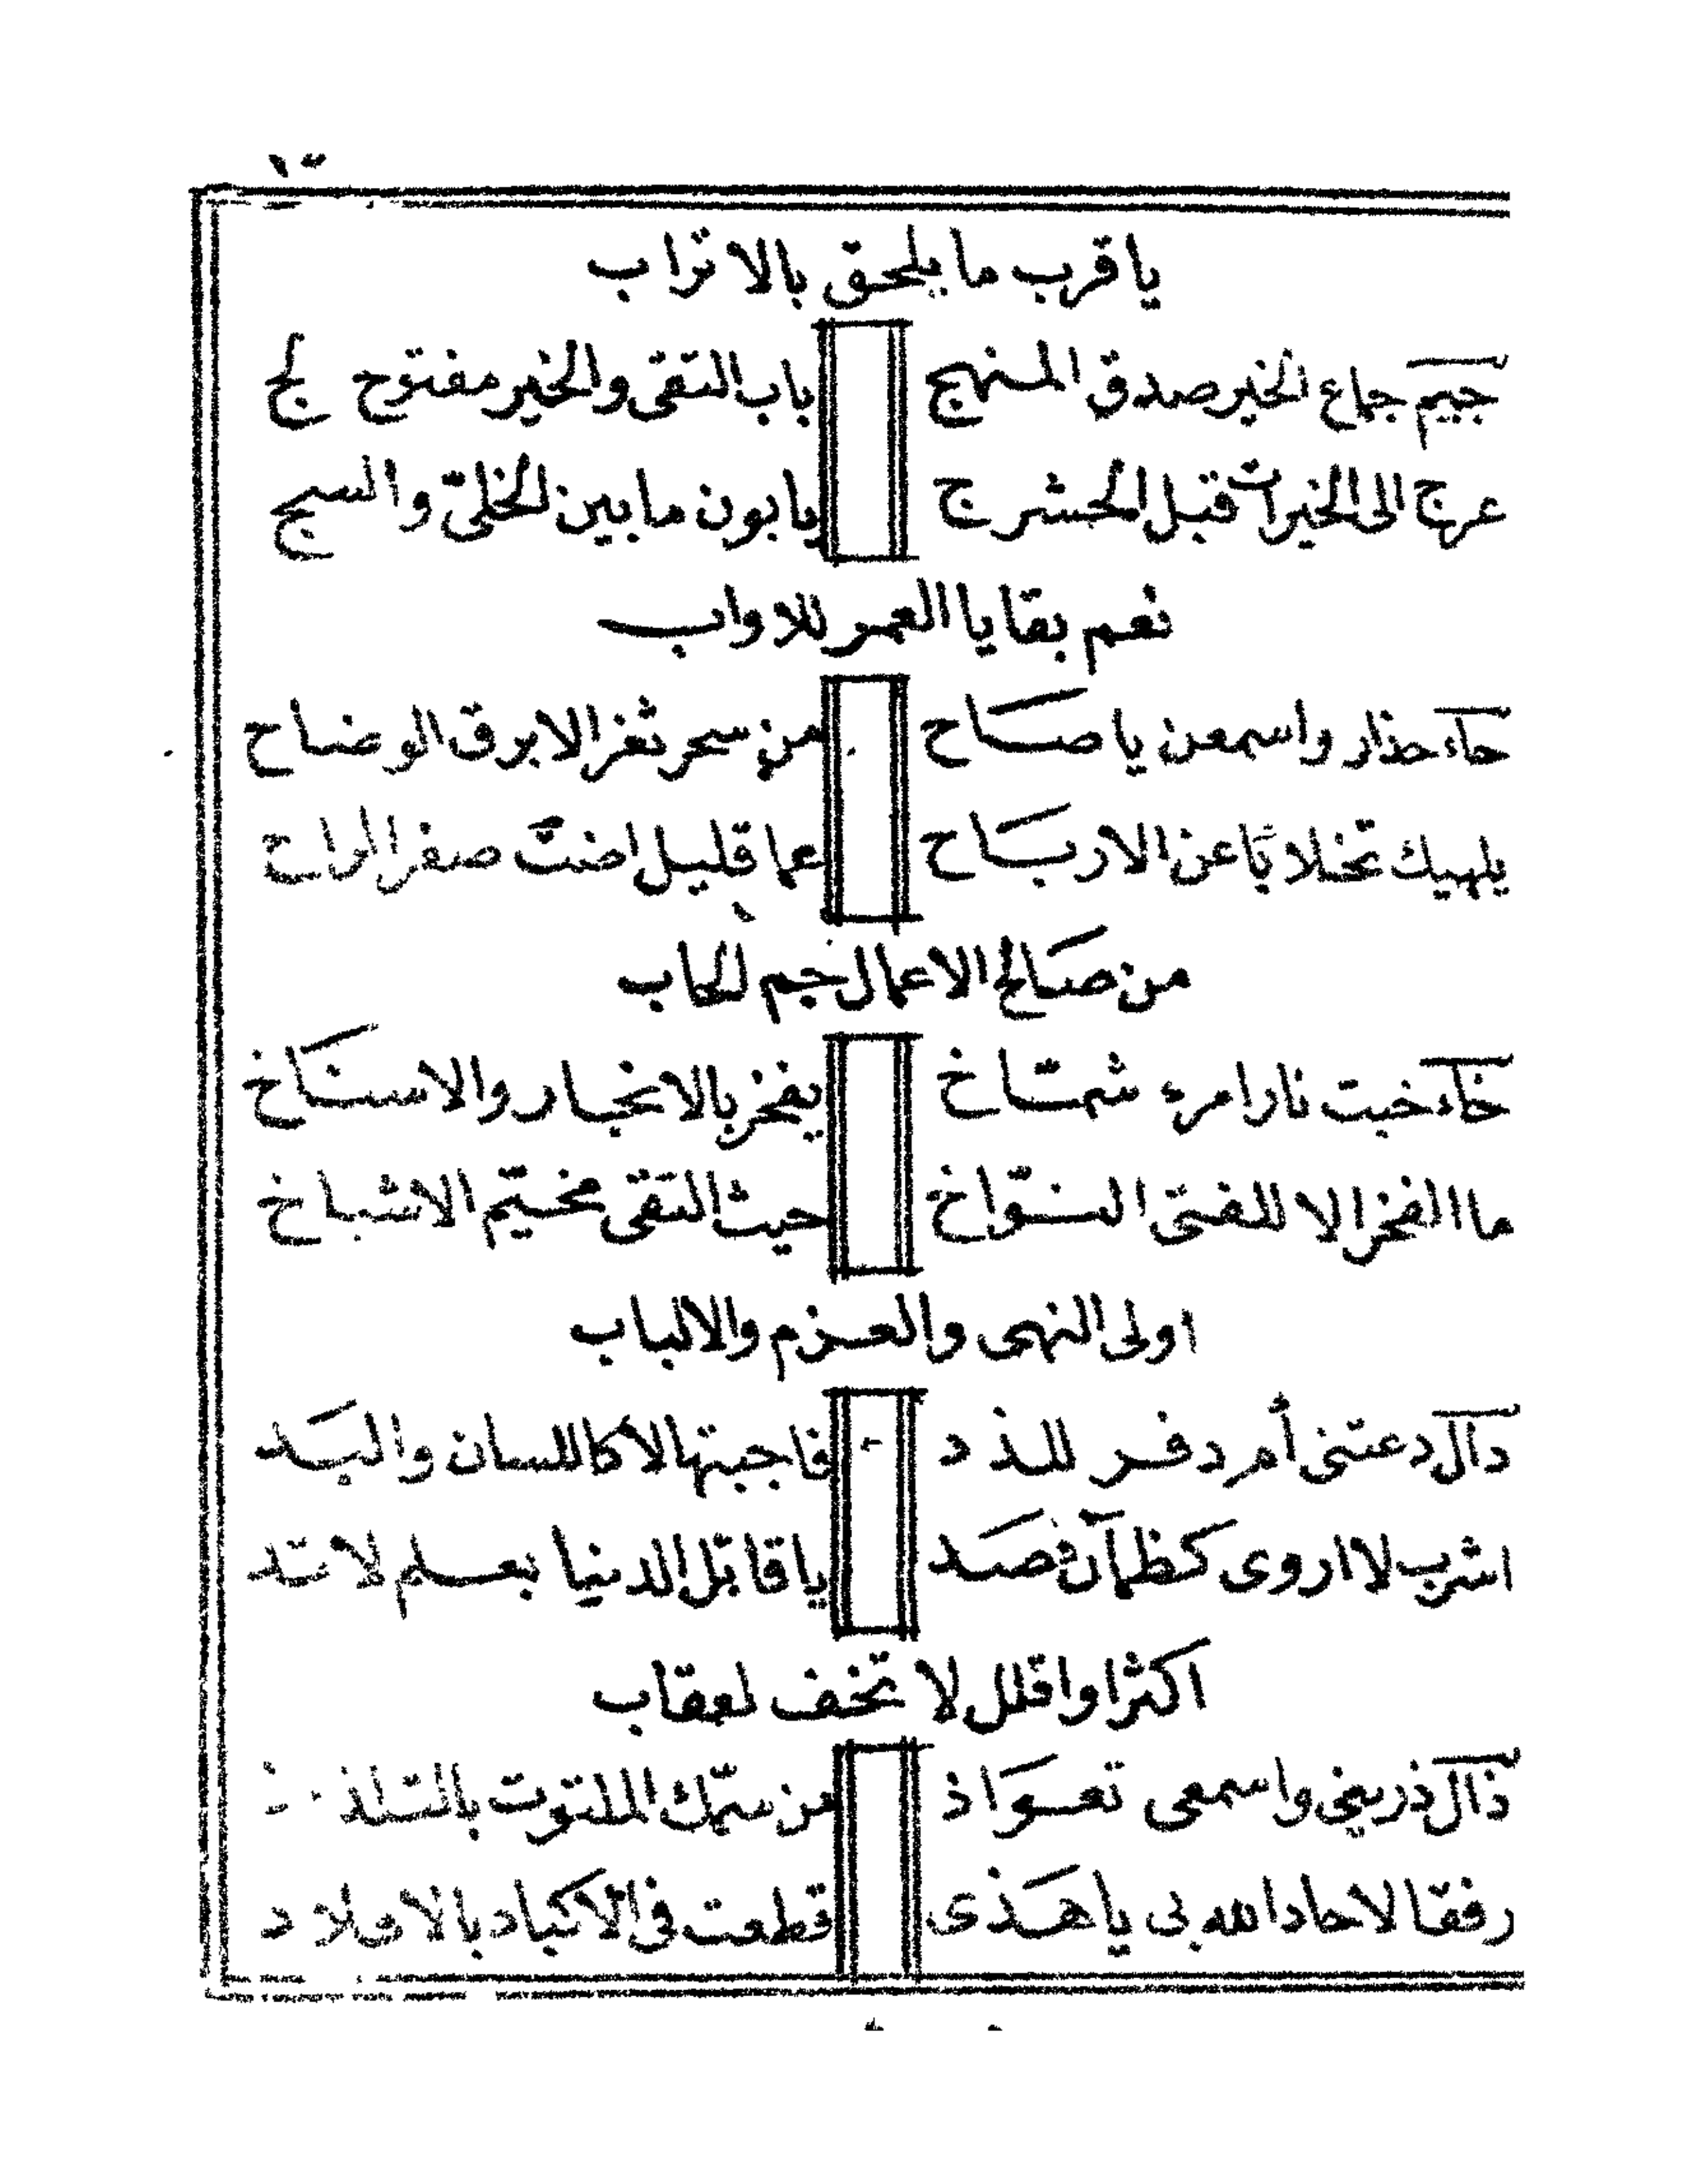 يا قرب ما يلحق بالاتراب
جيم جماع الخير صدق المنهج باب التقى والخير مفتوح لج
عرج الى الخيرات قبل الحشرج يا بون ما بين الخليّ والسبج
نعم بقايا العمر للاواب
حاء حذار واسمعن يا صاح من سحر ثغر الابرق الوضاح
يلهيك تخلابًا عن الارباح عما قليل اضت صفر الراح
من صالح الاعمال جم الحاب
خاء خبت نار امرء شماخ يفخر بالانجار والاسناخ
ما الفخر الا للفتى النواخ حيث التقى مخيم الاشباخ
اولى النهى والعزم والالباب
دال دعتنى أم دفر للدد فاجبتها لا كاللسان واليد
اشرب لا اروى كظمآن فصد يا قاتل الدنيا بعلم لا تد
اكثر او اقلل لا تخف لعقاب
ذال ذرينى واسمعى تعواذ من سمّك الملتوت بالتلذ
رفقا لا حاد الله بى يا هذى قطعت فى الاكباد بالافلاذ